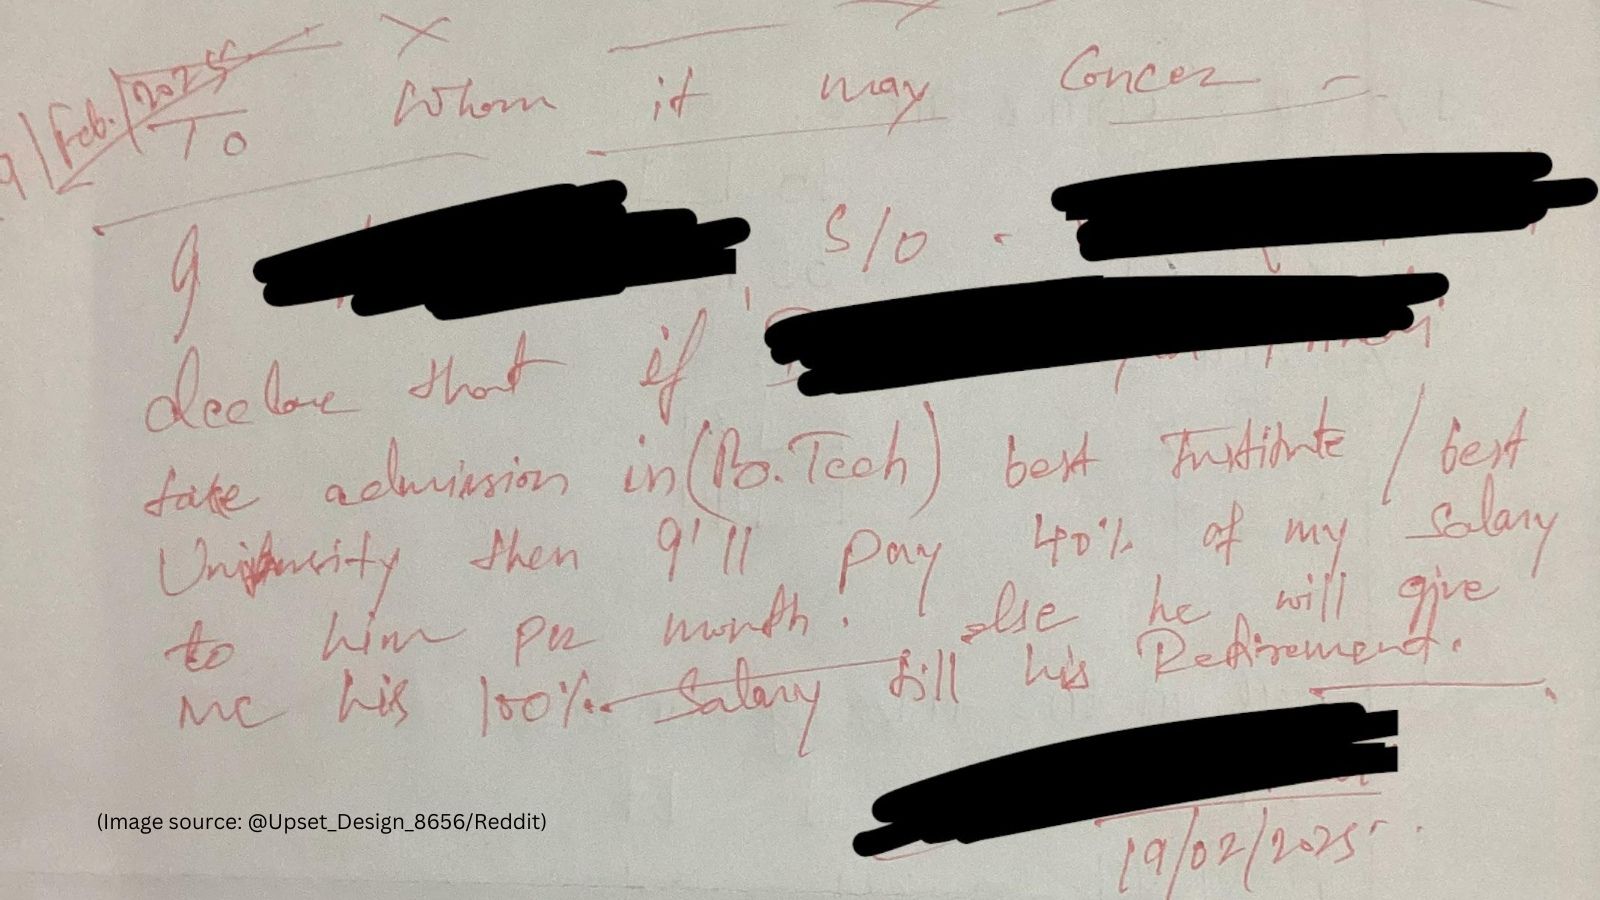 19/Feb./2025
To Whom it may Concer
I S/O -
declare that if
take admission in (B.Tech) best Institute / best
University then I'll pay 40% of my salary
to him per month. else he will give
me his 100% Salary till his Retirement.
19/02/2025
(Image source: @Upset_Design_8656/Reddit)